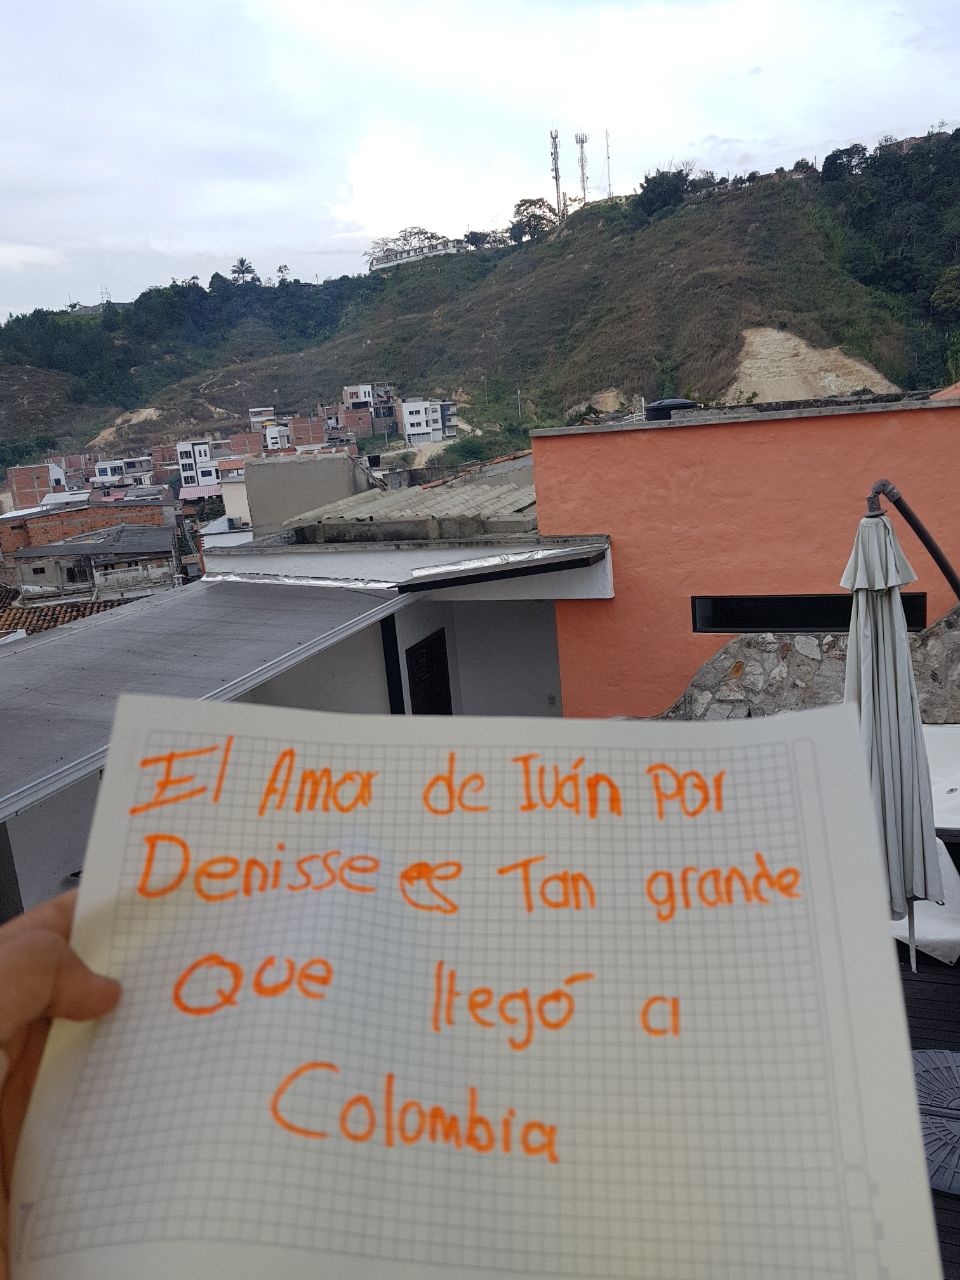 El Amor de Iván Por
Denisse es Tan grande
Que llegó a
Colombia